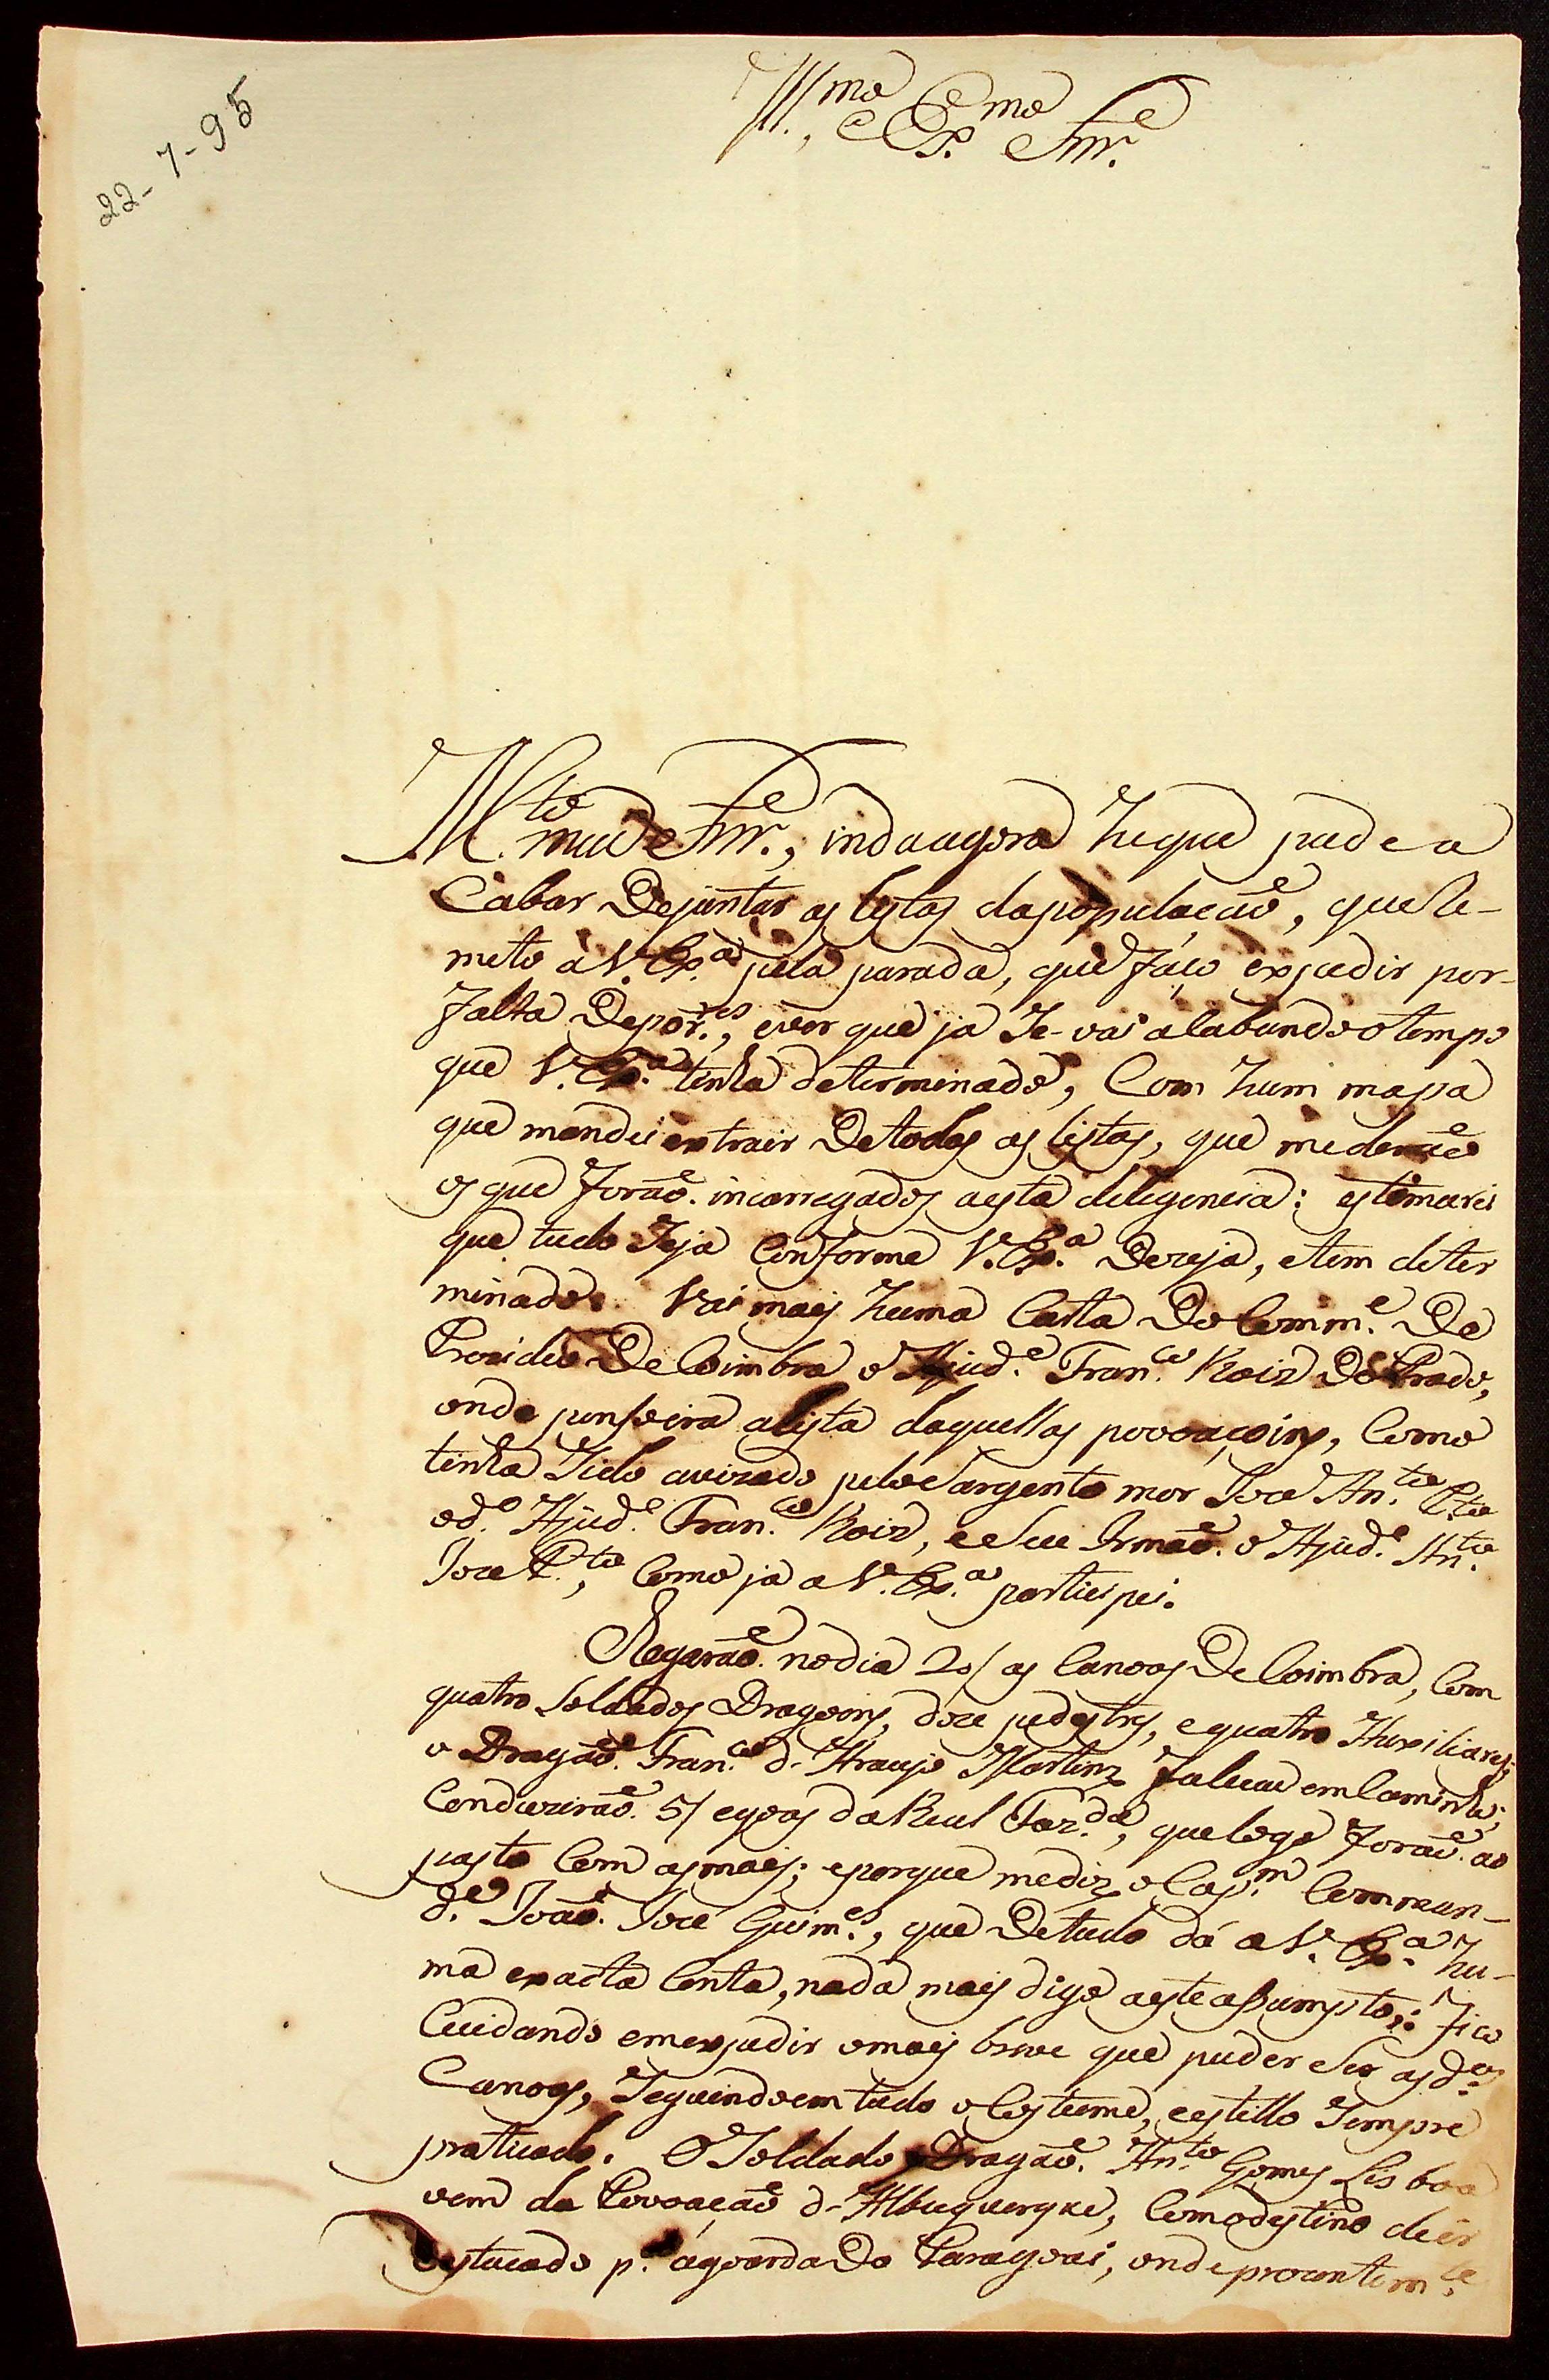 22-7-95
Ill.mo e Ex.mo Snr.
M.to meu Snr., indaagora he que pude a
Cabar de juntar as listas da população, que Re-
meto à V. Ex.a pela parada, que faço expedir por
falta de por.es, e ver que ja Se-vai acabando o tempo
que V. Ex.a tinha determinado, Com hum mapa
que mandei extrair de todas as listas, que me derão
os que forão incarregados a esta deligencia: estimarei
que tudo Seja Conforme V. Ex.a Dezeja, e tem deter
minado. Vai mais huma Carta do Comm.e do
Prezidio de Coimbra o Ajud.e Fran.co Roiz do Prado,
onde penso virá a lista daquellas povoaçoins, Como
tinha Sido avizado pelo Sargento mor Joze An.to P.to
o d.o Ajud.e Fran.co Roiz, e Seu Irmão o Ajud.e An.to
Joze P.to, Como ja a V. Ex.a participei.
Chegarão no dia 20/ as Canoas de Coimbra, Com
quatro Soldados Dragoins, doze pedestres, e quatro Auxiliares;
o Dragão Fran.co d-Araujo Martinz faleceu em Caminho;
Conduzirão 51 egoas da Real Faz.da, que logo forão ao
pasto Com as mais; e porque me diz o Cap.m Comman-
d.e João Joze Guim.es, que de tudo dá a V. Ex.a hu-
ma exacta Conta, nada mais digo a este assumpto: fico
Cuidando em expedir o mais breve que puder Ser as d.as
Canoas, Seguindo em tudo o Costume, e estillo Sempre
praticado. O Soldado Dragão An.to Gomes Lisboa
vem da Povoação d-Albuquerque, Com o destino de ir
destacado p.a a goarda do Paragoai, onde prezentem.te